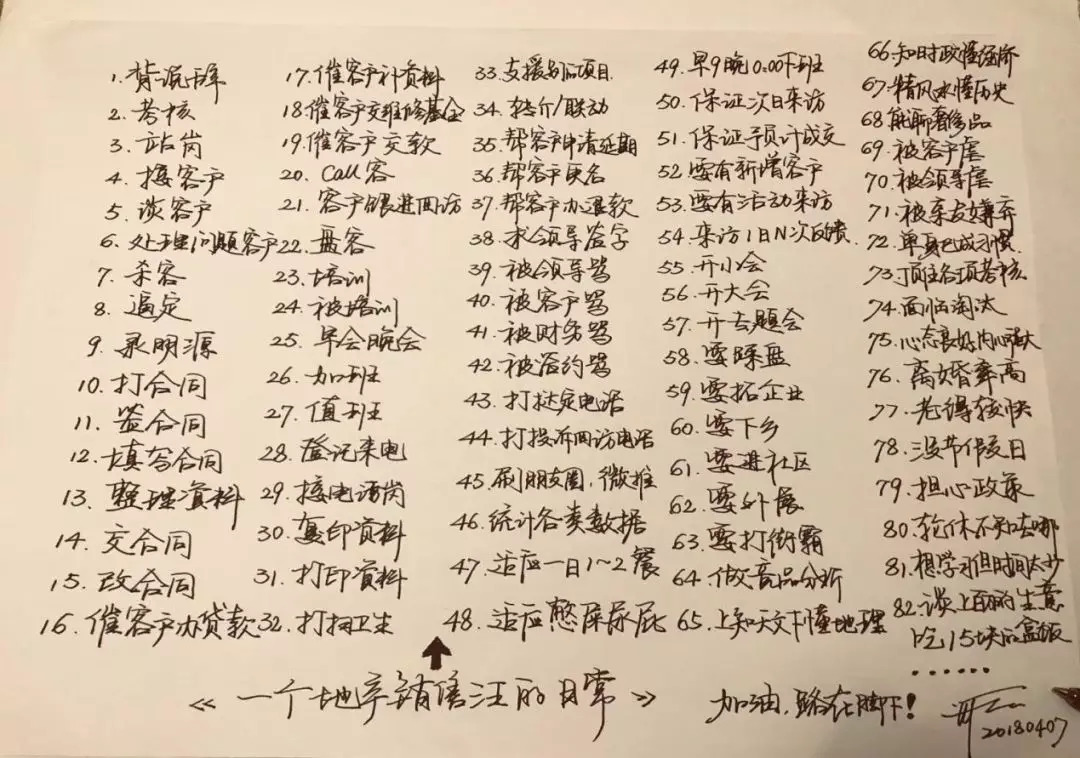 1. 背说辞
2. 考核
3. 站岗
4. 接客户
5. 谈客户
6. 处理问题客户
7. 杀客
8. 逼定
9. 录明源
10. 打合同
11. 签合同
12. 填写合同
13. 整理资料
14. 交合同
15. 改合同
16. 催客户办贷款
17. 催客户补资料
18. 催客户交维修基金
19. 催客户交款
20. Call客
21. 客户跟进回访
22. 盘客
23. 培训
24. 被培训
25. 早会晚会
26. 加班
27. 值班
28. 登记来电
29. 接电话岗
30. 复印资料
31. 打印资料
32. 打扫卫生
33. 支援别的项目
34. 转介/联动
35. 帮客户申请延期
36. 帮客户更名
37. 帮客户办退款
38. 求领导签字
39. 被领导骂
40. 被客户骂
41. 被财务骂
42. 被签约骂
43. 打挞定电话
44. 打投诉回访电话
45. 刷朋友圈、微推
46. 统计各类数据
47. 适应一日1~2餐
48. 适应憋屎尿屁
49. 早9晚0:00下班
50. 保证次日来访
51. 保证预计成交
52. 要有新增客户
53. 要有活动来访
54. 来访1日N次反馈
55. 开小会
56. 开大会
57. 开专题会
58. 要踩盘
59. 要拓企业
60. 要下乡
61. 要进社区
62. 要外展
63. 要打街霸
64. 做竞品分析
65. 上知天文下懂地理
66. 知时政懂经济
67. 精风水懂历史
68. 能聊奢侈品
69. 被客户虐
70. 被领导虐
71. 被亲友嫌弃
72. 单身已成习惯
73. 顶住各项考核
74. 面临淘汰
75. 心态良好内心强大
76. 离婚率高
77. 老得较快
78. 没节假日
79. 担心政策
80. 轮休不知去哪
81. 想学习但时间太少
82. 谈上百万的生意
吃15块的盒饭
......
《一个地产销售汪的日常》
加油,路在脚下!
20180407